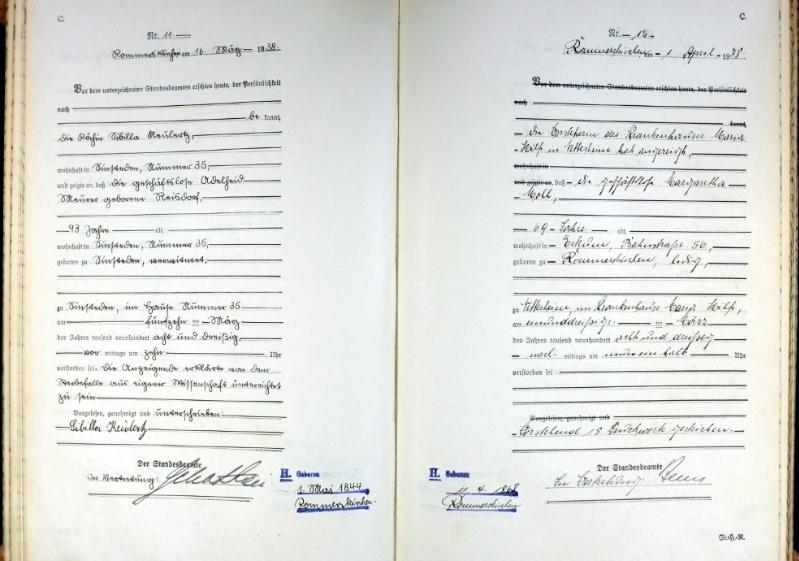 C.
Nr. 11
Rommerskirchen am 16. März 1938.
Vor dem unterzeichneten Standesbeamten erschien heute, der Persönlichkeit
nach
be kannt,
die Köchin Sibilla Keulertz,
wohnhaft in Sinsteden, Nummer 35,
und zeigte an, daß die geschäftslose Adelheid
Meurer geborene Reisdorf,
93 Jahre alt
wohnhaft in Sinsteden, Nummer 35,
geboren zu Sinsteden, verwitwet,
zu Sinsteden, im Hause Nummer 35
am fünfzehn ten März
des Jahres tausend neunhundert acht und dreißig,
vor mittags um zehn Uhr
verstorben sei. Die Anzeigende erklärte von dem
Sterbefalle aus eigener Wissenschaft unterrichtet
zu sein
Vorgelesen, genehmigt und unterschrieben:
Sibilla Keulertz
Der Standesbeamte
In Vertretung:
H. Geboren
1. Mai 1844
Rommerskirchen.
C.
Nr. 12
Rommerskirchen 1 April 1938.
Vor dem unterzeichneten Standesbeamten erschien heute, der Persönlichkeit
nach
kannt,
die Vorsteherin des Krankenhauses Maria
Hilf in Nettesheim hat angezeigt,
wohnhaft in
und zeigte an, daß die geschäftslose Margaretha
Moll,
69 Jahre alt
wohnhaft in Eckum, Bahnstraße 56,
geboren zu Rommerskirchen, ledig,
zu Nettesheim, im Krankenhause Maria Hilf,
am einunddreißigs ten März
des Jahres tausend neunhundert acht und dreißig
nach mittags um neuneinhalb Uhr
verstorben sei
Vorgelesen, genehmigt und
Vorstehend 18 Druckworte gestrichen.
Der Standesbeamte
In Vertretung
H. Geboren
4. 1868
Rommerskirchen
St.H.R.